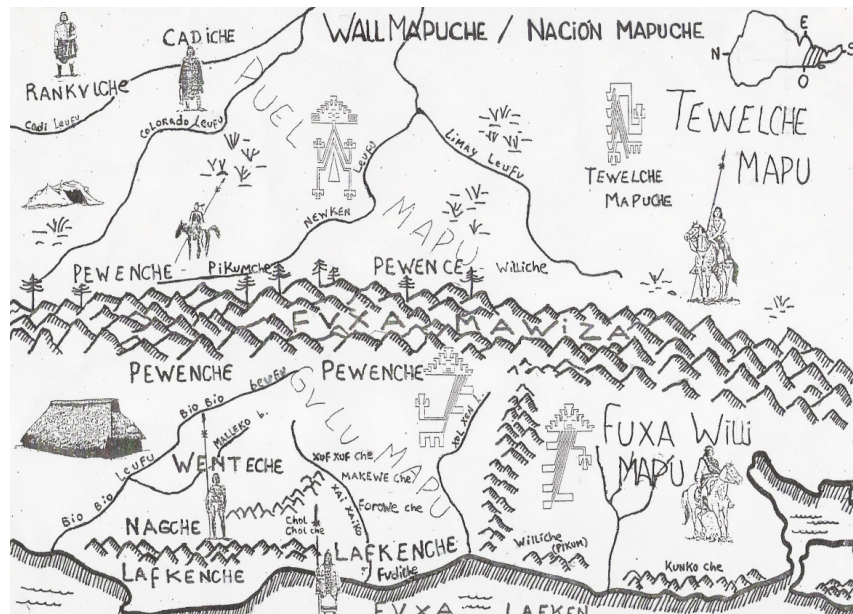 WALLMAPUCHE / NACIÓN MAPUCHE
E
N
S
O
CADICHE
RANKVLCHE
CADI LEUFU
COLORADO LEUFU
PUEL
MAPU
NEWKEN LEUFU
LIMAY LEUFU
TEWELCHE
MAPUCHE
TEWELCHE
MAPU
PEWENCHE - PIKUMCHE
PEWENCE - WILLICHE
FVXA MAWIZA
PEWENCHE
PEWENCHE
BIO BIO LEUFU
BIO BIO LEUFU
MALLEKO b.
GVLU MAPU
WENTECHE
XUF XUF che
MAKEWE che
FOROWE che
XAI XAIKO
CHOL
CHOL che
NAGCHE
LAFKENCHE
LAFKENCHE
XOL XEN
FUXA WILLI
MAPU
WILLICHE
(PIKUM)
KUNKO che
FVXA LAFKEN